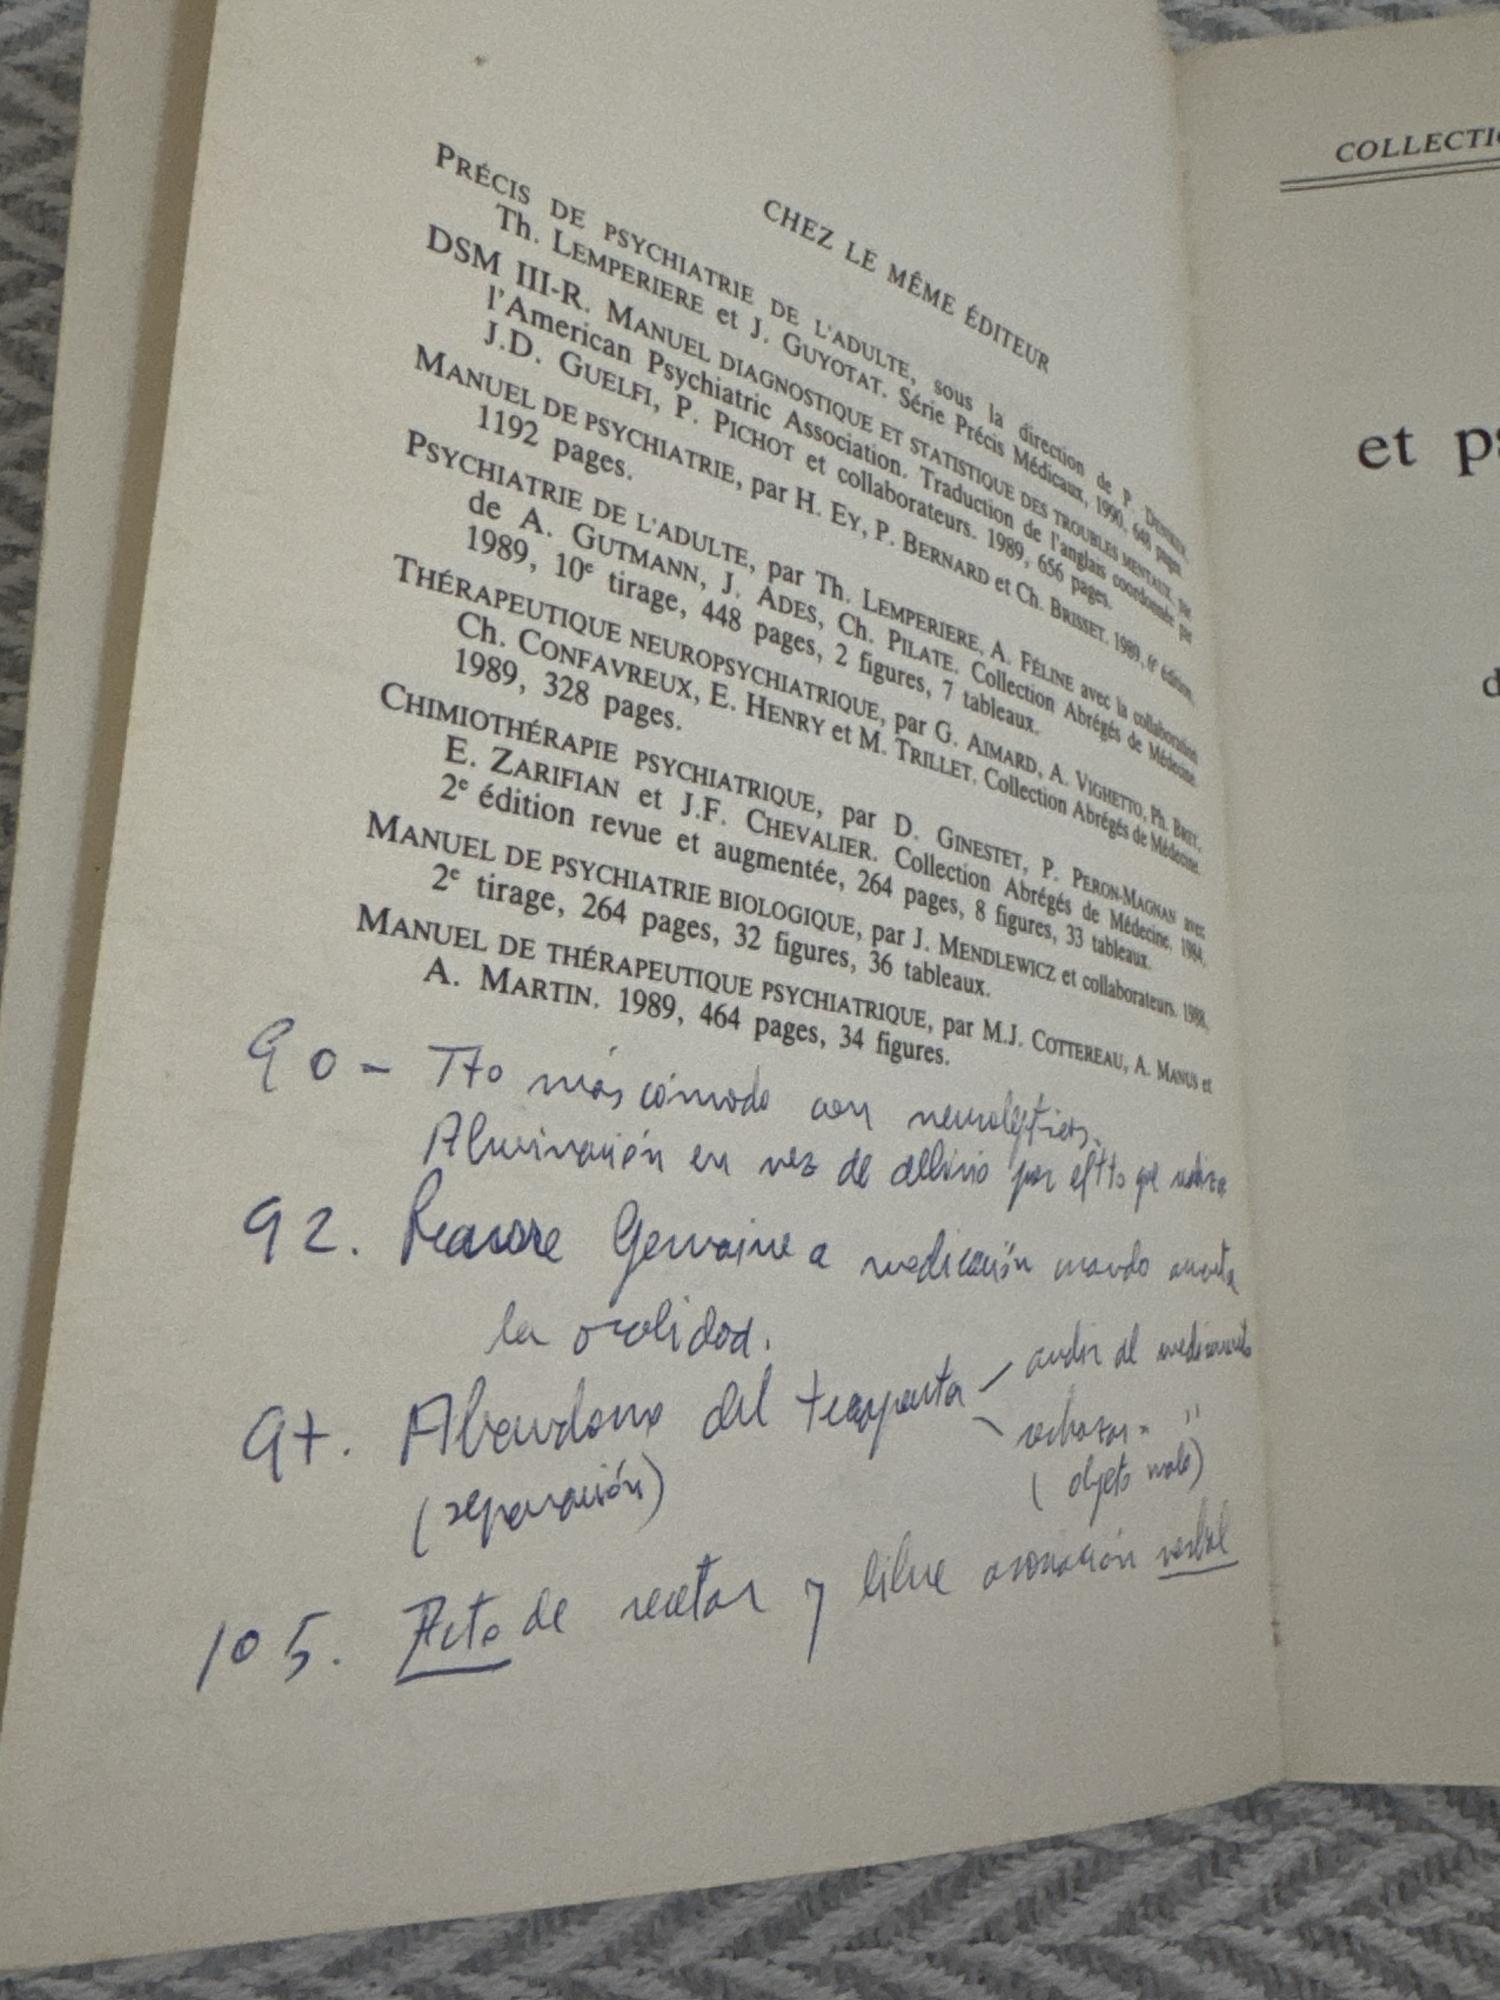 CHEZ LE MÊME ÉDITEUR
PRÉCIS DE PSYCHIATRIE DE L'ADULTE, sous la direction de P. DENIKER,
Th. LEMPERIERE et J. GUYOTAT. Série Précis Médicaux, 1990, 648 pages.
DSM III-R. MANUEL DIAGNOSTIQUE ET STATISTIQUE DES TROUBLES MENTAUX, par
l'American Psychiatric Association. Traduction de l'anglais coordonnée par
J.D. GUELFI, P. PICHOT et collaborateurs. 1989, 656 pages.
MANUEL DE PSYCHIATRIE, par H. EY, P. BERNARD et Ch. BRISSET. 1989, 6e édition,
1192 pages.
PSYCHIATRIE DE L'ADULTE, par Th. LEMPERIERE, A. FÉLINE avec la collaboration
de A. GUTMANN, J. ADES, Ch. PILATE. Collection Abrégés de Médecine.
1989, 10e tirage, 448 pages, 2 figures, 7 tableaux.
THÉRAPEUTIQUE NEUROPSYCHIATRIQUE, par G. AIMARD, A. VIGHETTO, Ph. BRET,
Ch. CONFAVREUX, E. HENRY et M. TRILLET. Collection Abrégés de Médecine.
1989, 328 pages.
CHIMIOTHÉRAPIE PSYCHIATRIQUE, par D. GINESTET, P. PERON-MAGNAN avec
E. ZARIFIAN et J.F. CHEVALIER. Collection Abrégés de Médecine. 1984,
2e édition revue et augmentée, 264 pages, 8 figures, 33 tableaux.
MANUEL DE PSYCHIATRIE BIOLOGIQUE, par J. MENDLEWICZ et collaborateurs. 1988,
2e tirage, 264 pages, 32 figures, 36 tableaux.
MANUEL DE THÉRAPEUTIQUE PSYCHIATRIQUE, par M.J. COTTEREAU, A. MANUS et
A. MARTIN. 1989, 464 pages, 34 figures.
90 - Tto más cómodo con neurolépticos.
Alucinación en vez de delirio por el tto que realiza
92. Germaine a medicación cuando
la oralidad.
97. Abandono del terapeuta — acudir al medicamento
(separación) rechazar - "
(objeto malo)
105. Acto de recetar y libre asociación verbal
COLLECTIO
et ps
d